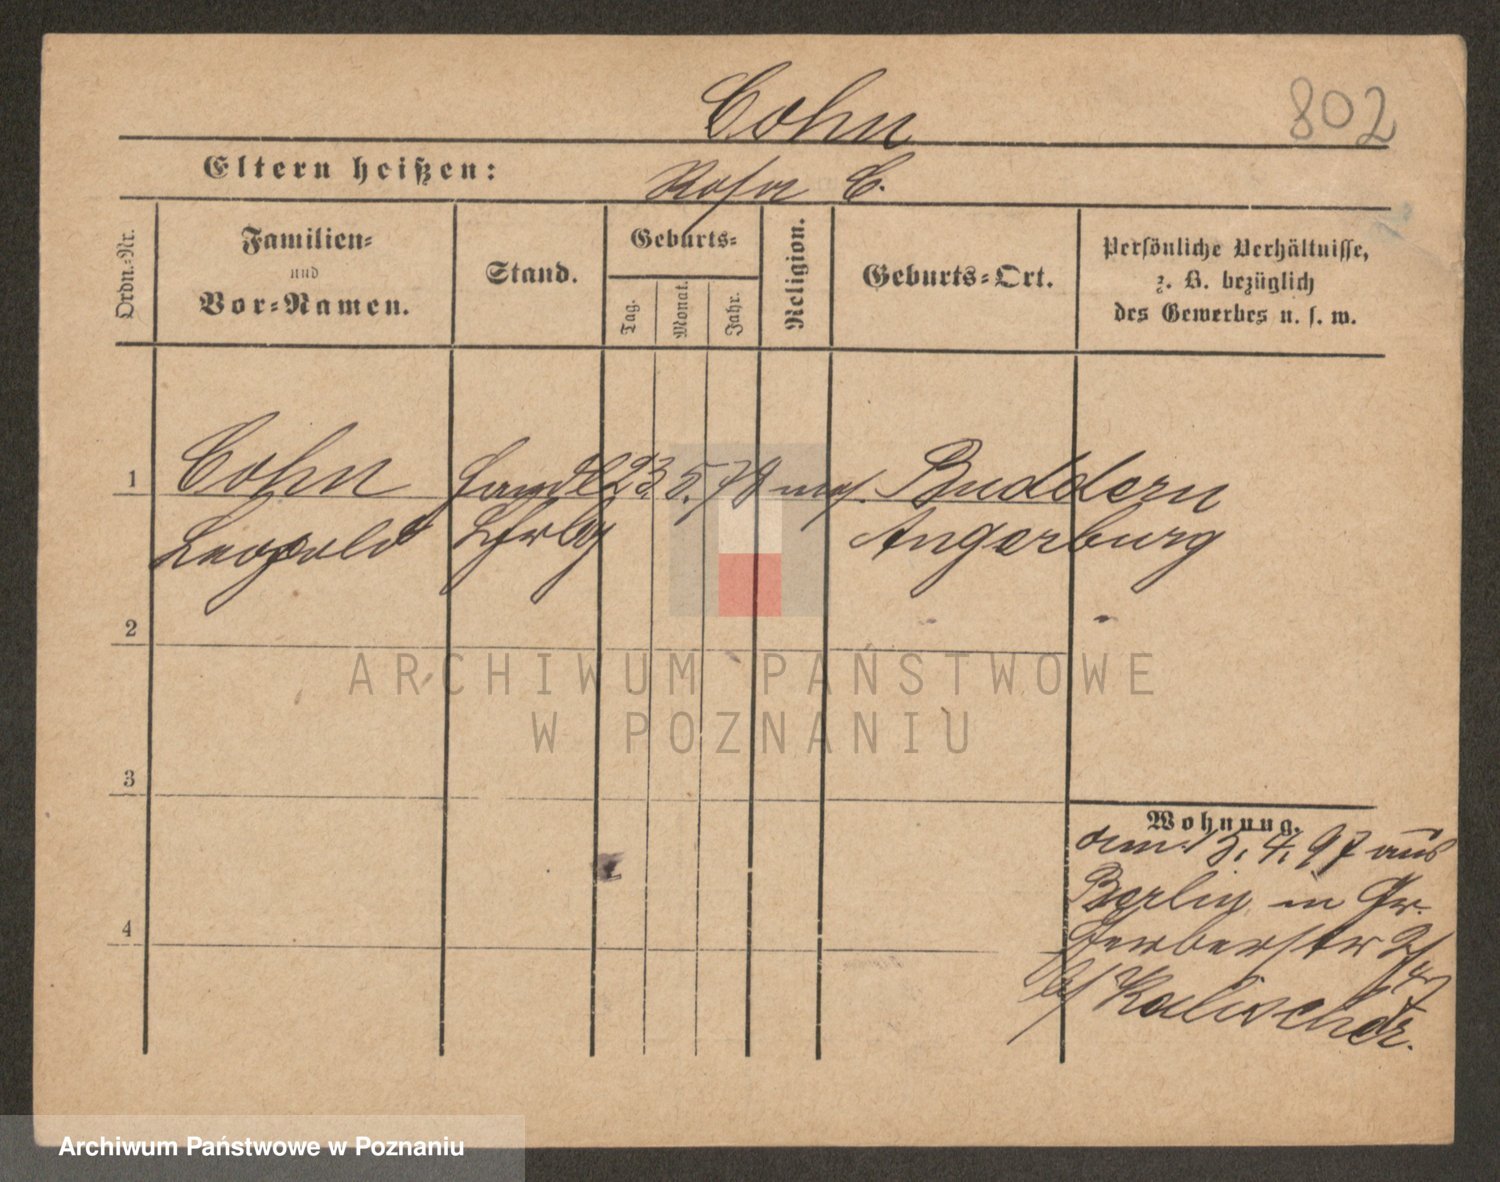 Cohn
802
Eltern heißen:
Rosa C.
Ordn.-Nr.
Familien-
und
Vor-Namen.
Stand.
Geburts-
Tag.
Monat.
Jahr.
Religion.
Geburts-Ort.
Persönliche Verhältnisse,
z. B. bezüglich
des Gewerbes u. s. w.
1
Cohn
Leopold
Handl
23 5. 78 mos.
Buddern
Angerburg
2
3
4
Wohnung.
den 13. 4. 97 aus
Berlin in Gr.
Gerberstr
b/ Kalischer.
ARCHIWUM PAŃSTWOWE
W POZNANIU
Archiwum Państwowe w Poznaniu